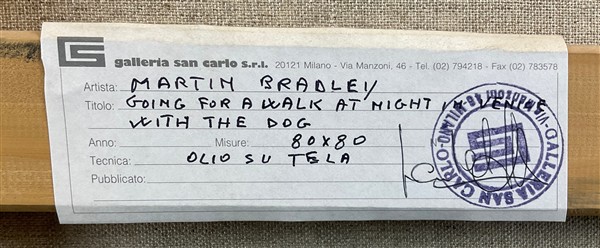 galleria san carlo s.r.l. 20121 Milano - Via Manzoni, 46 - Tel. (02) 794218 - Fax (02) 783578
Artista: MARTIN BRADLEY
Titolo: GOING FOR A WALK AT NIGHT IN VENICE
WITH THE DOG
Anno: Misure: 80x80
Tecnica: OLIO SU TELA
Pubblicato:
GALLERIA SAN CARLO - VIA MANZONI 46 MILANO